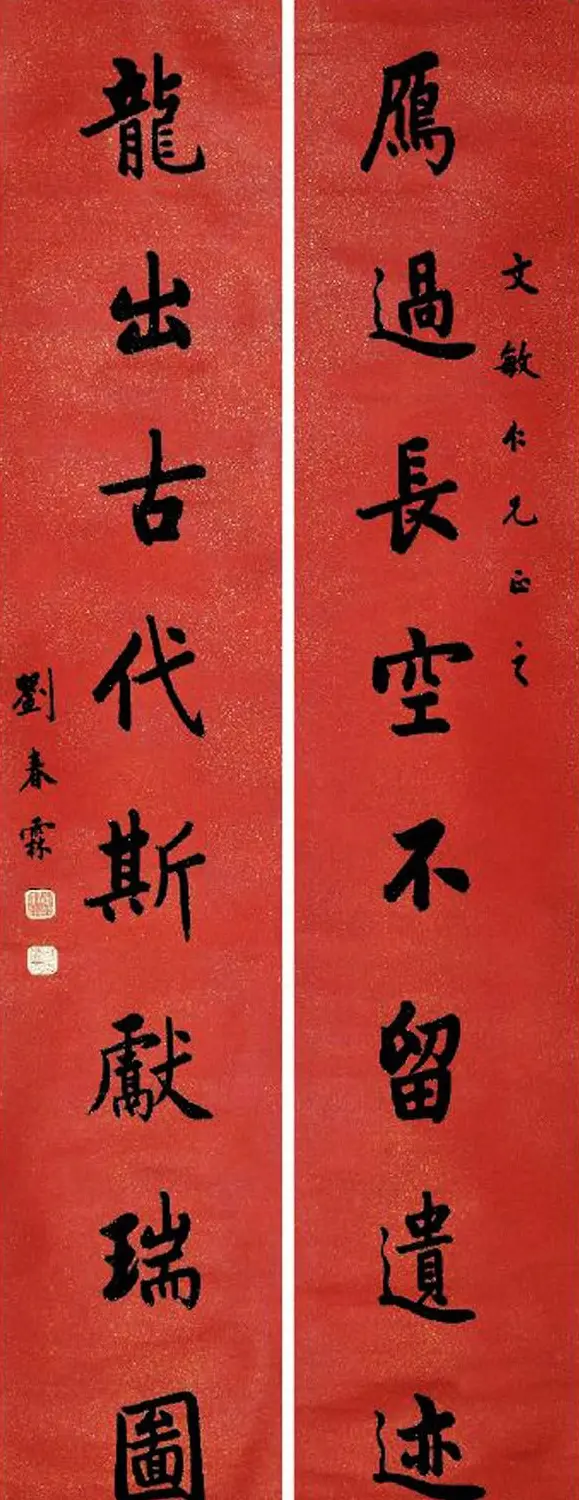 文敏仁兄正之
鴈過長空不留遺迹
龍出古代斯獻瑞圖
劉春霖